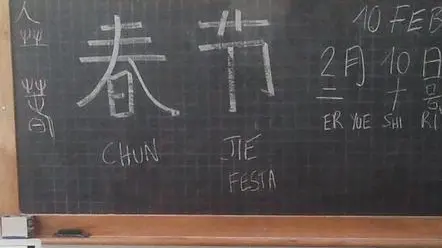 人
春节
CHUN JIÉ
FESTA
10 FEB
2月10日
二 十号
ER YUE SHI RI